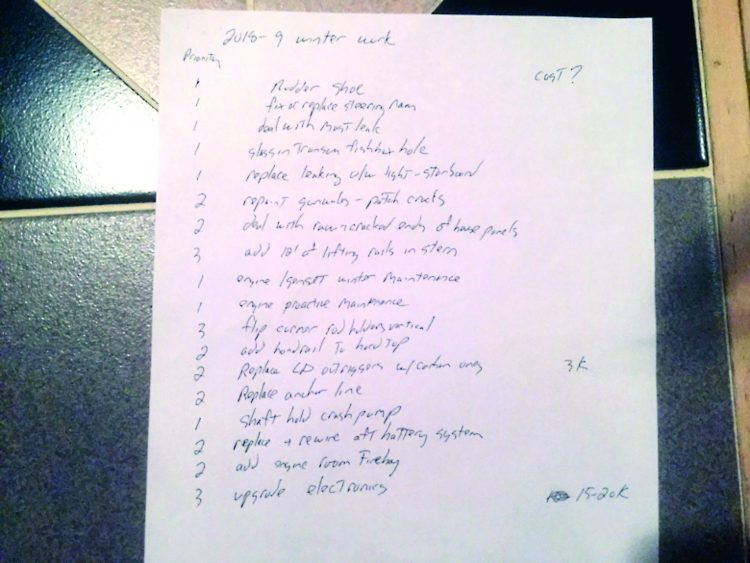 2018-9 winter work
Priority
Cost?
1 Rudder shoe
1 fix or replace steering ram
1 deal with mast leak
1 glass in transom fishbox hole
1 replace leaking u/w light - starboard
2 repaint gunwales - patch cracks
2 deal with raw cracked ends of house panels
3 add 12' of lifting rails in stern
1 engine/genset winter maintenance
1 engine proactive maintenance
3 flip corner rod holders vertical
2 add handrail to hard top
2 Replace outriggers w/carbon ones 3K
2 Replace anchor line
1 shaft hold crash pump
2 replace + rewire aft battery system
2 add engine room Fireboy
3 upgrade electronics 15-20K